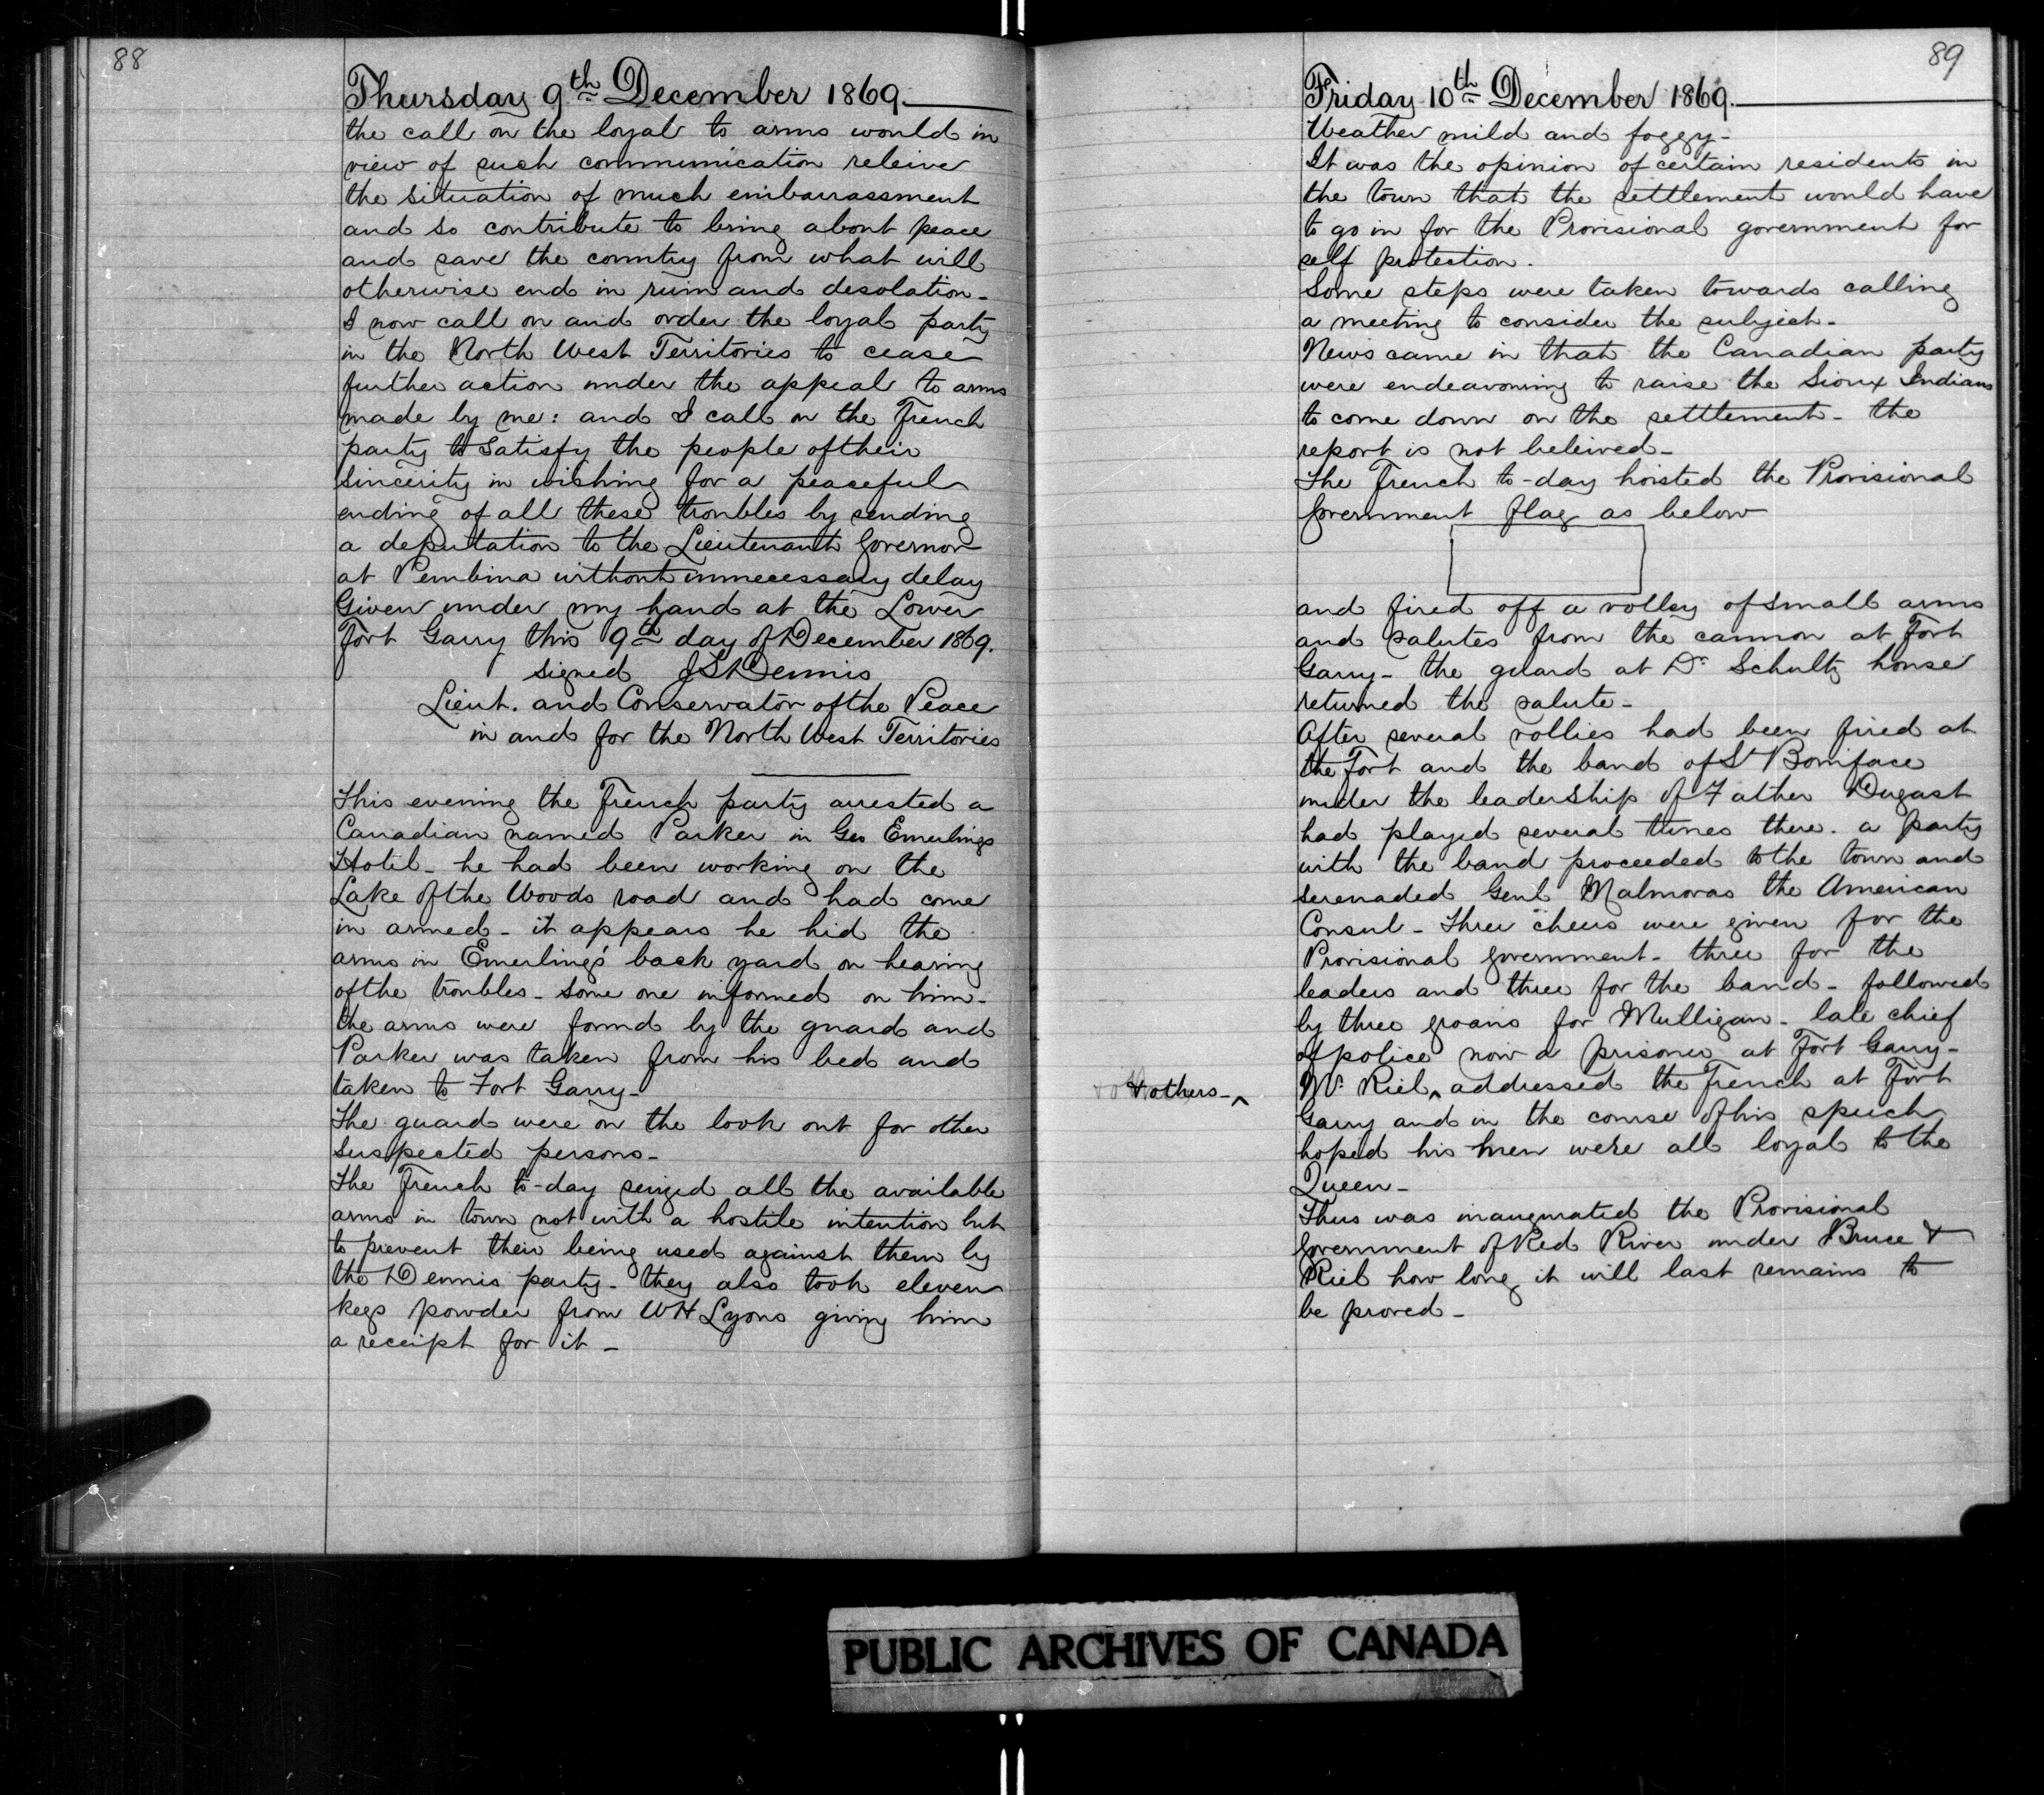 88
Thursday 9th December 1869.
the call on the loyal to arms would in
view of such communication releive
the situation of much embarrassment
and so contribute to bring about peace
and save the country from what will
otherwise end in ruin and desolation -
I now call on and order the loyal party
in the North West Territories to cease
further action under the appeal to arms
made by me: and I call on the French
party to satisfy the people of their
sincerity in wishing for a peaceful
ending of all these troubles by sending
a deputation to the Lieutenant Governor
at Pembina without unnecessary delay
Given under my hand at the Lower
Fort Garry this 9th day of December 1869.
signed J S Dennis
Lieut. and Conservator of the Peace
in and for the North West Territories
This evening the French party arrested a
Canadian named Parker in Geo Emerlings
Hotel - he had been working on the
Lake of the Woods road and had come
in armed - it appears he hid the
arms in Emerling's back yard on hearing
of the troubles - some one informed on him -
the arms were found by the guard and
Parker was taken from his bed and
taken to Fort Garry -
The guard were on the look out for other
suspected persons -
The French to-day seized all the available
arms in town not with a hostile intention but
to prevent their being used against them by
the Dennis party - they also took eleven
kegs powder from W H Lyons giving him
a receipt for it -
89
Friday 10th December 1869.
Weather mild and foggy -
It was the opinion of certain residents in
the town that the settlement would have
to go in for the Provisional government for
self protection -
Some steps were taken towards calling
a meeting to consider the subject -
News came in that the Canadian party
were endeavouring to raise the Sioux Indians
to come down on the settlement - the
report is not beleived -
The French to-day hoisted the Provisional
Government flag as below
and fired off a volley of small arms
and salutes from the cannon at Fort
Garry - the guard at Dr Schultz house
returned the salute -
After several vollies had been fired at
the Fort and the band of St Boniface
under the leadership of Father Dugast
had played several tunes there - a party
with the band proceeded to the town and
serenaded Genl Malmoras the American
Consul - three cheers were given for the
Provisional government - three for the
leaders and three for the band - followed
by three groans for Mulligan - late chief
of police now a prisoner at Fort Garry -
& others - ^
Mr Riel ^ addressed the French at Fort
Garry and in the course of his speech
hoped his men were all loyal to the
Queen -
Thus was inaugurated the Provisional
Government of Red River under Bruce &
Riel how long it will last remains to
be proved -
PUBLIC ARCHIVES OF CANADA